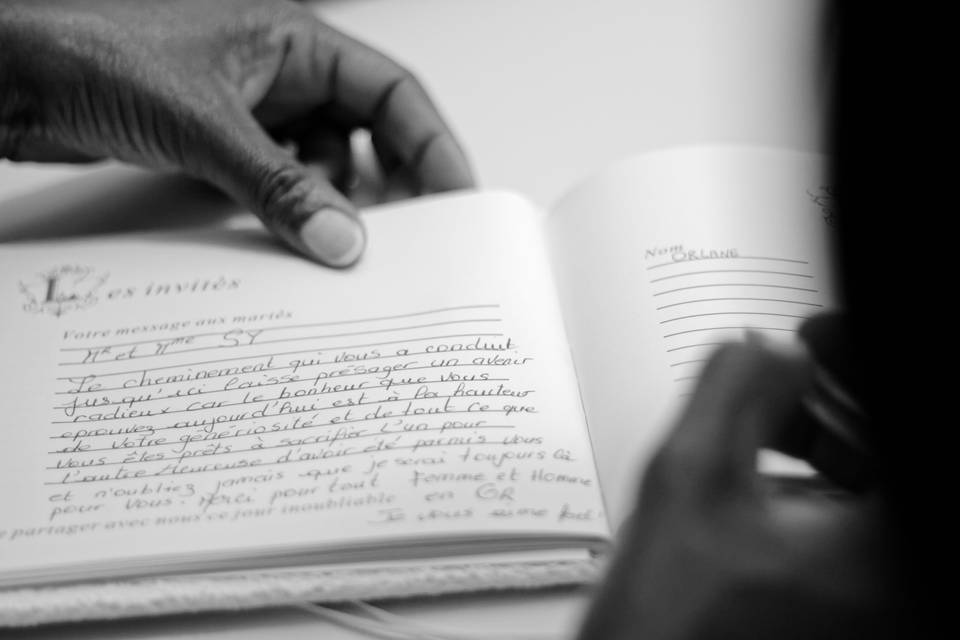 Les invités
Votre message aux mariés
Mr et Mme SY
Le cheminement qui vous a conduit
jusqu'ici laisse présager un avenir
radieux car le bonheur que vous
eprouvez aujourd'hui est à la hauteur
de votre génériosité et de tout ce que
vous êtes prêts à sacrifier l'un pour
l'autre. Heureuse d'avoir été parmis vous
et n'oubliez jamais que je serai toujours là
pour vous. Merci pour tout Femme et Homme
en OR
partager avec nous ce jour inoubliable
Je vous aime fort!
Nom ORLANE